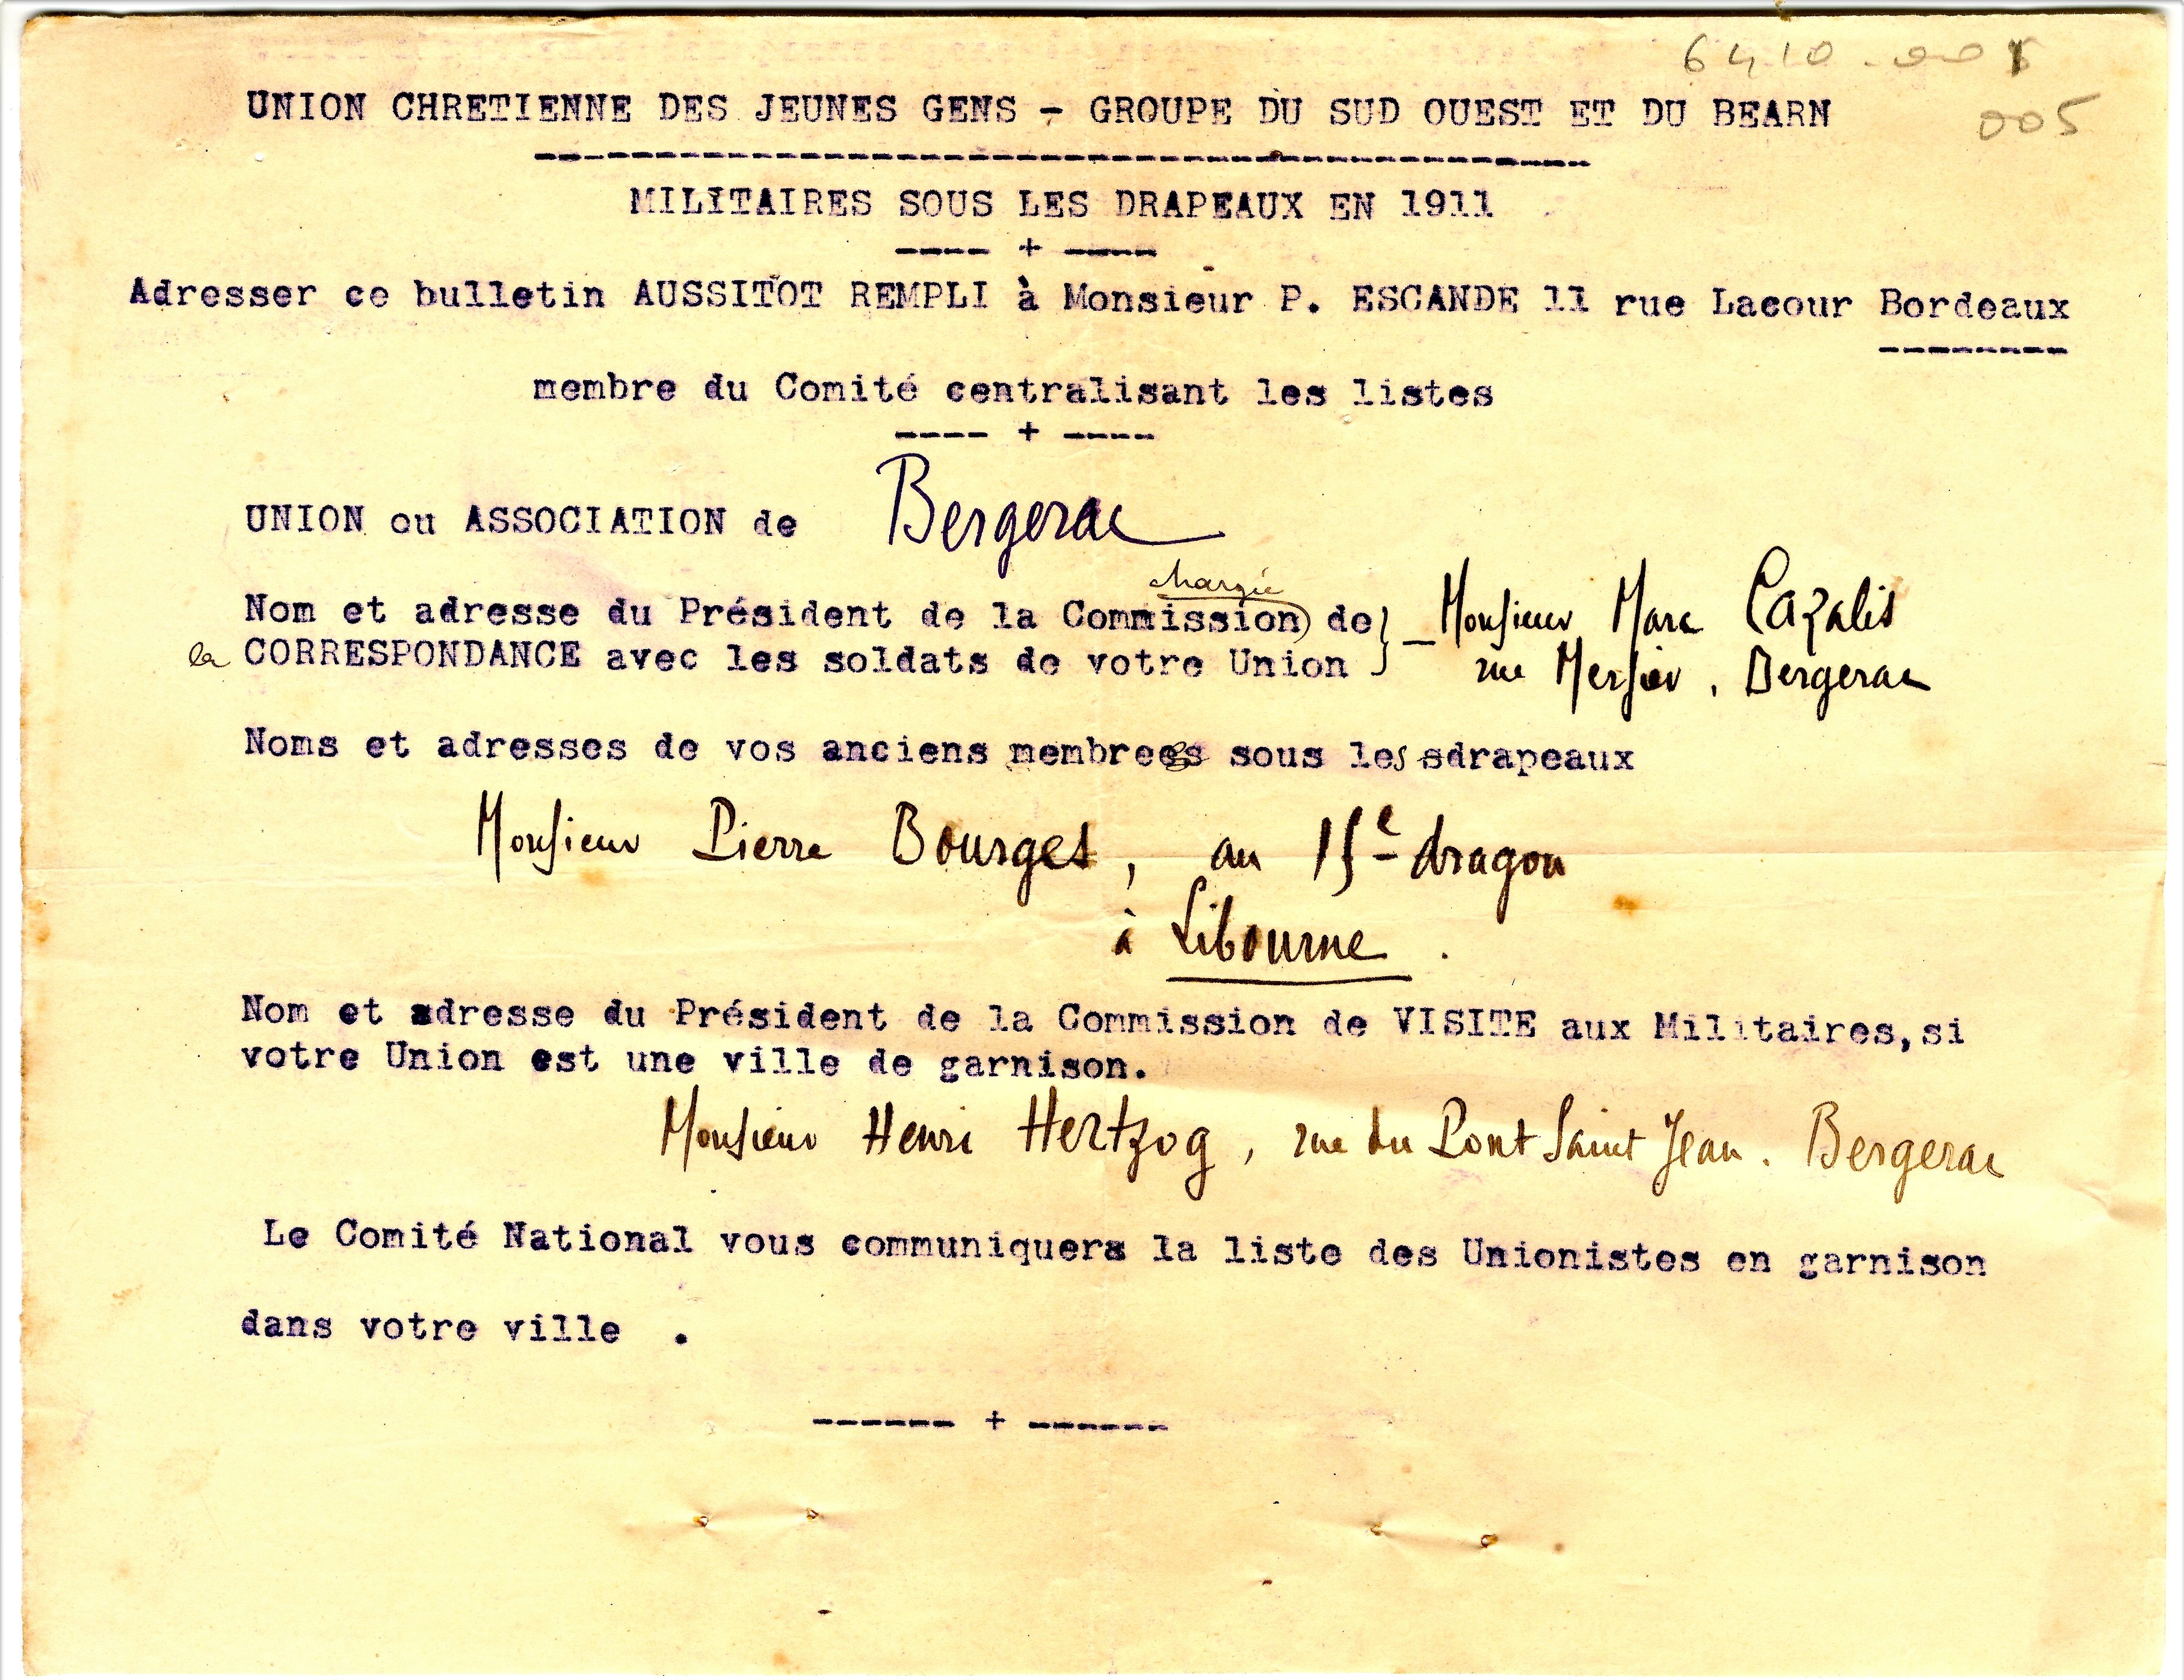 6410.00
005
UNION CHRETIENNE DES JEUNES GENS - GROUPE DU SUD OUEST ET DU BEARN
MILITAIRES SOUS LES DRAPEAUX EN 1911
---- + ----
Adresser ce bulletin AUSSITOT REMPLI à Monsieur P. ESCANDE 11 rue Lacour Bordeaux
membre du Comité centralisant les listes
---- + ----
UNION ou ASSOCIATION de Bergerac
chargée
Nom et adresse du Président de la Commission de } - Monsieur Marc Cazalis
la CORRESPONDANCE avec les soldats de votre Union } rue Mersier, Bergerac
Noms et adresses de vos anciens membres sous les drapeaux
Monsieur Pierre Bourges, au 15e dragon
à Libourne.
Nom et adresse du Président de la Commission de VISITE aux Militaires, si
votre Union est une ville de garnison.
Monsieur Henri Hertzog, rue du Pont Saint Jean. Bergerac
Le Comité National vous communiquera la liste des Unionistes en garnison
dans votre ville .
------ + ------